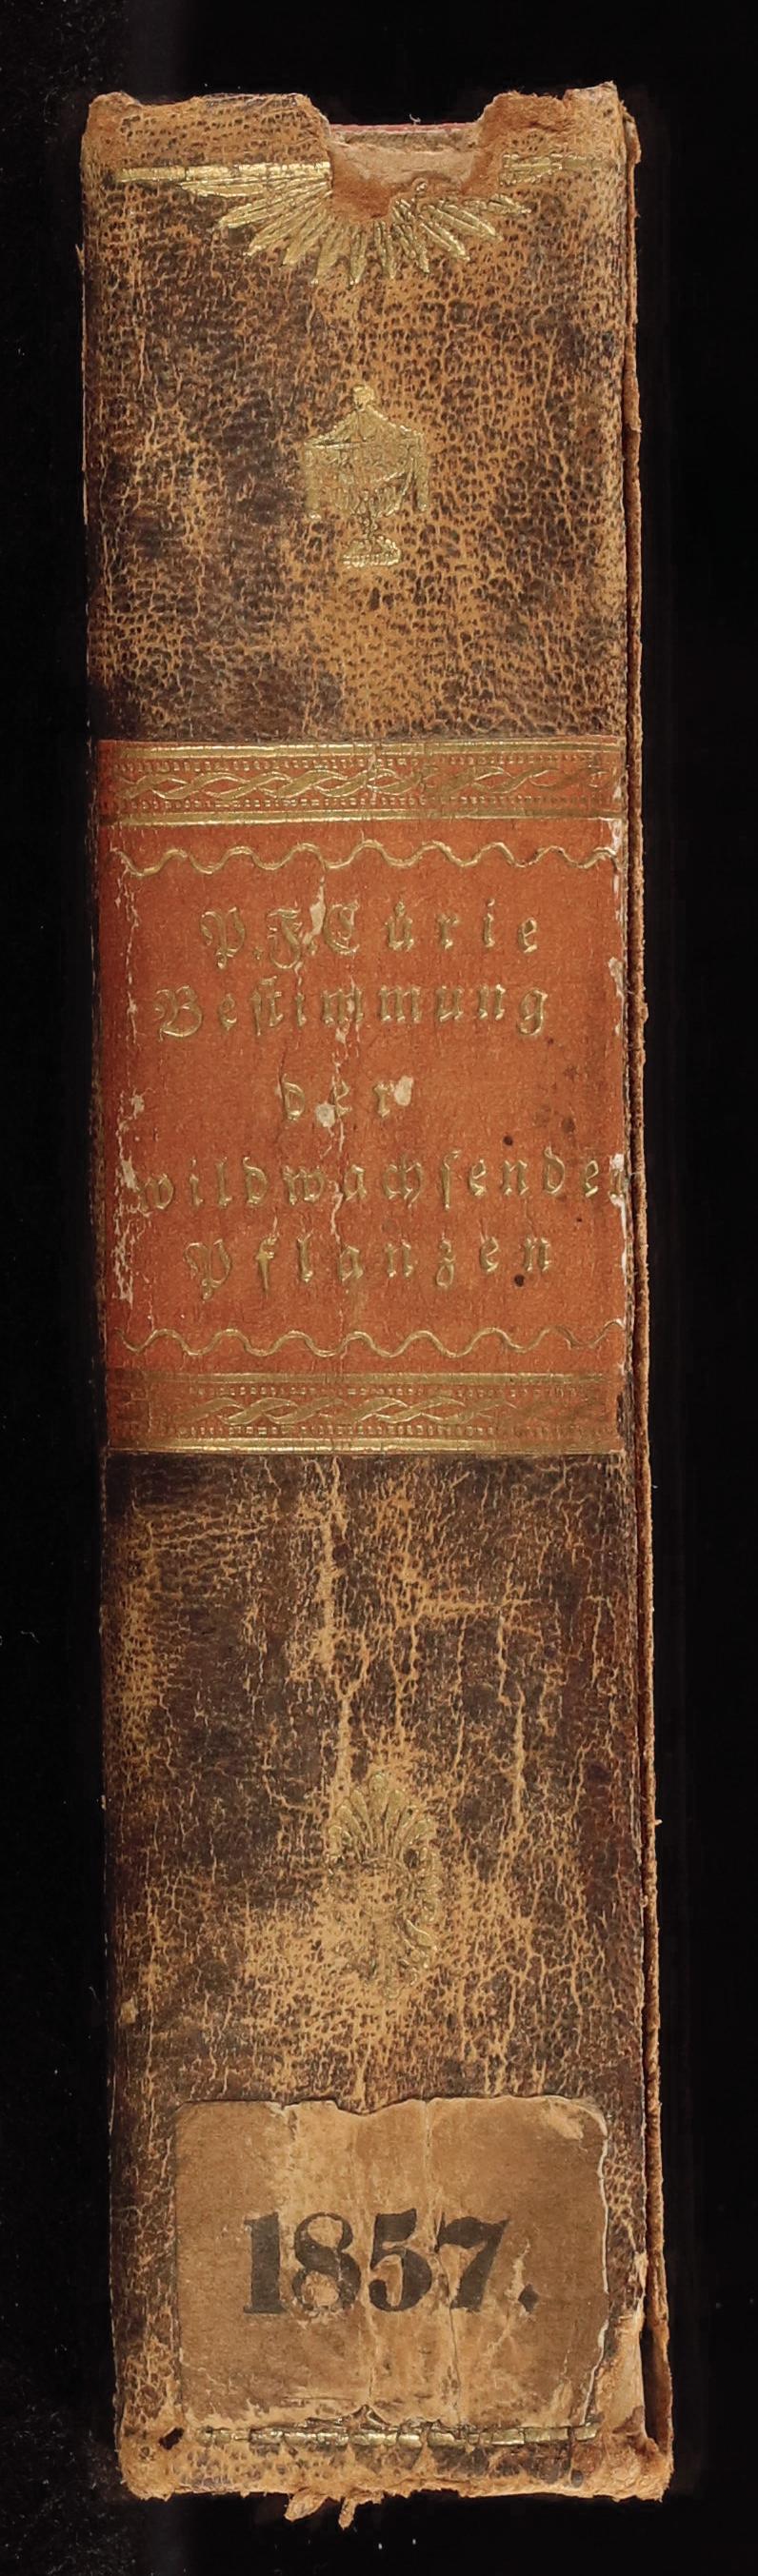 P.F.Cürie
Bestimmung
der
wildwachsenden
Pflanzen
1857.